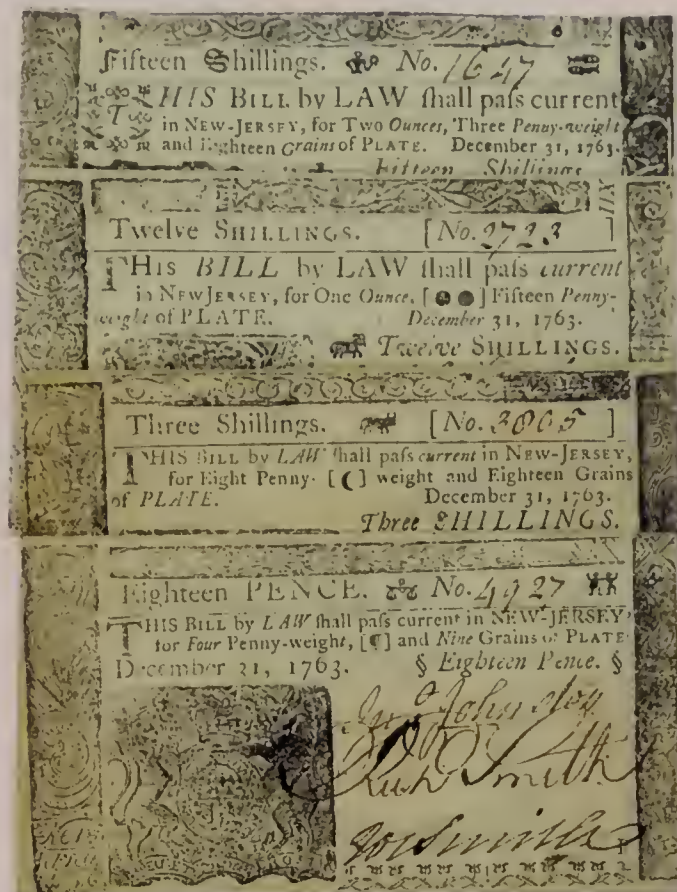 Fifteen Shillings. No. 1647
THIS BILL by LAW ſhall paſs current
in NEW-JERSEY, for TWO Ounces, Three Penny-weight
and Eighteen Grains of PLATE. December 31, 1763.
Fifteen Shillings
XII
Twelve SHILLINGS. [No. 2723 ]
THIS BILL by LAW ſhall paſs current
in NEW JERSEY, for One Ounce, [ ● ● ] Fifteen Penny-
weight of PLATE. December 31, 1763.
Twelve SHILLINGS.
Three Shillings. [No. 3865 ]
THIS BILL by LAW ſhall paſs current in NEW-JERSEY,
for Eight Penny- [ ( ] weight and Eighteen Grains
of PLATE. December 31, 1763.
Three SHILLINGS.
Eighteen PENCE. No. 4927
THIS BILL by LAW ſhall paſs current in NEW-JERSEY
for Four Penny-weight, [¶] and Nine Grains of PLATE.
December 31, 1763. § Eighteen Pence. §
Jno Johnston
Richd Smith
Jos Smith